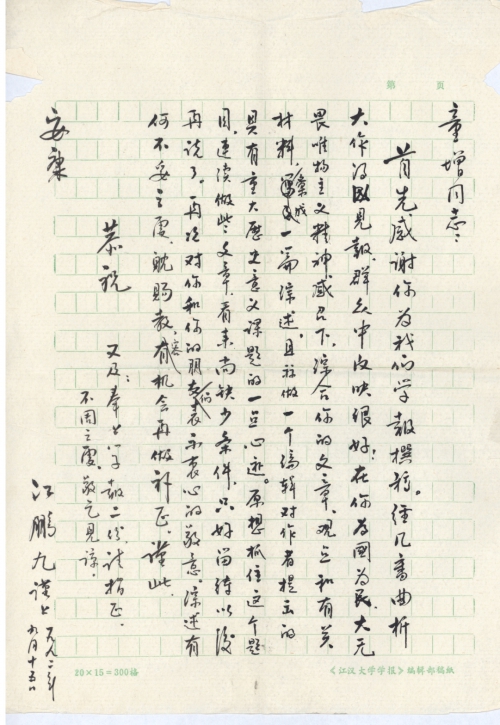 第 页
童增同志：
首先感谢你为我们学报撰稿。经几番曲折
大作得以见报，群众中反映很好！在你为国为民、大无
畏唯物主义精神感召下，综合你的文章、观点和有关
材料，集成一篇综述，且称做一个编辑对作者提出的
具有重大历史意义课题的一点心迹。原想抓住这个题
目，连续做些文章，看来尚缺少条件，只好留待以后
再说了。再次对你和你的朋友们表示衷心的敬意。综述有
何不妥之处，盼赐教，容有机会再做补正。谨此，
恭祝
安康
又及：奉上学报二份，请指正。
不周之处，敬乞见谅。
江鹏九谨上
一九九二年
九月十五日
20×15=300格
《江汉大学学报》编辑部稿纸